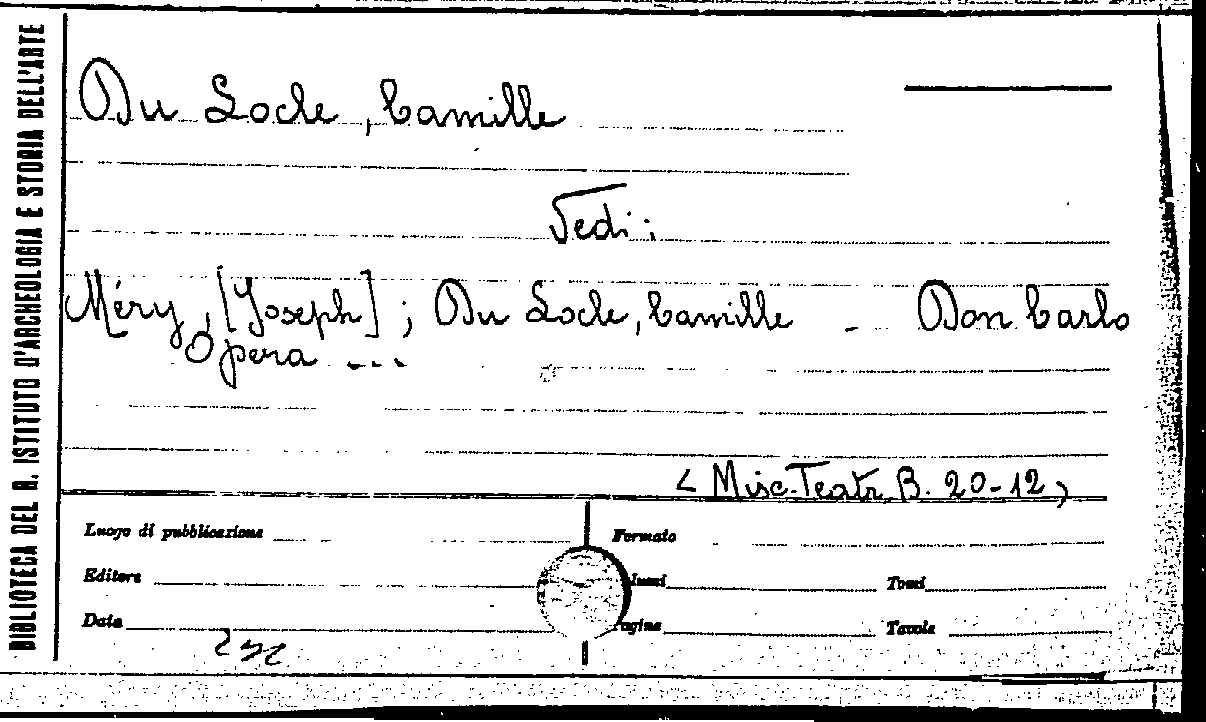 BIBLIOTECA DEL R. ISTITUTO D'ARCHEOLOGIA E STORIA DELL'ARTE
Du Locle, Camille
Vedi:
Méry, [Joseph]; Du Locle, Camille - Don Carlo
Opera ...
< Misc. Teatr. B. 20-12 >
Luogo di pubblicazione
Formato
Editore
Tomi
Data
Tavole